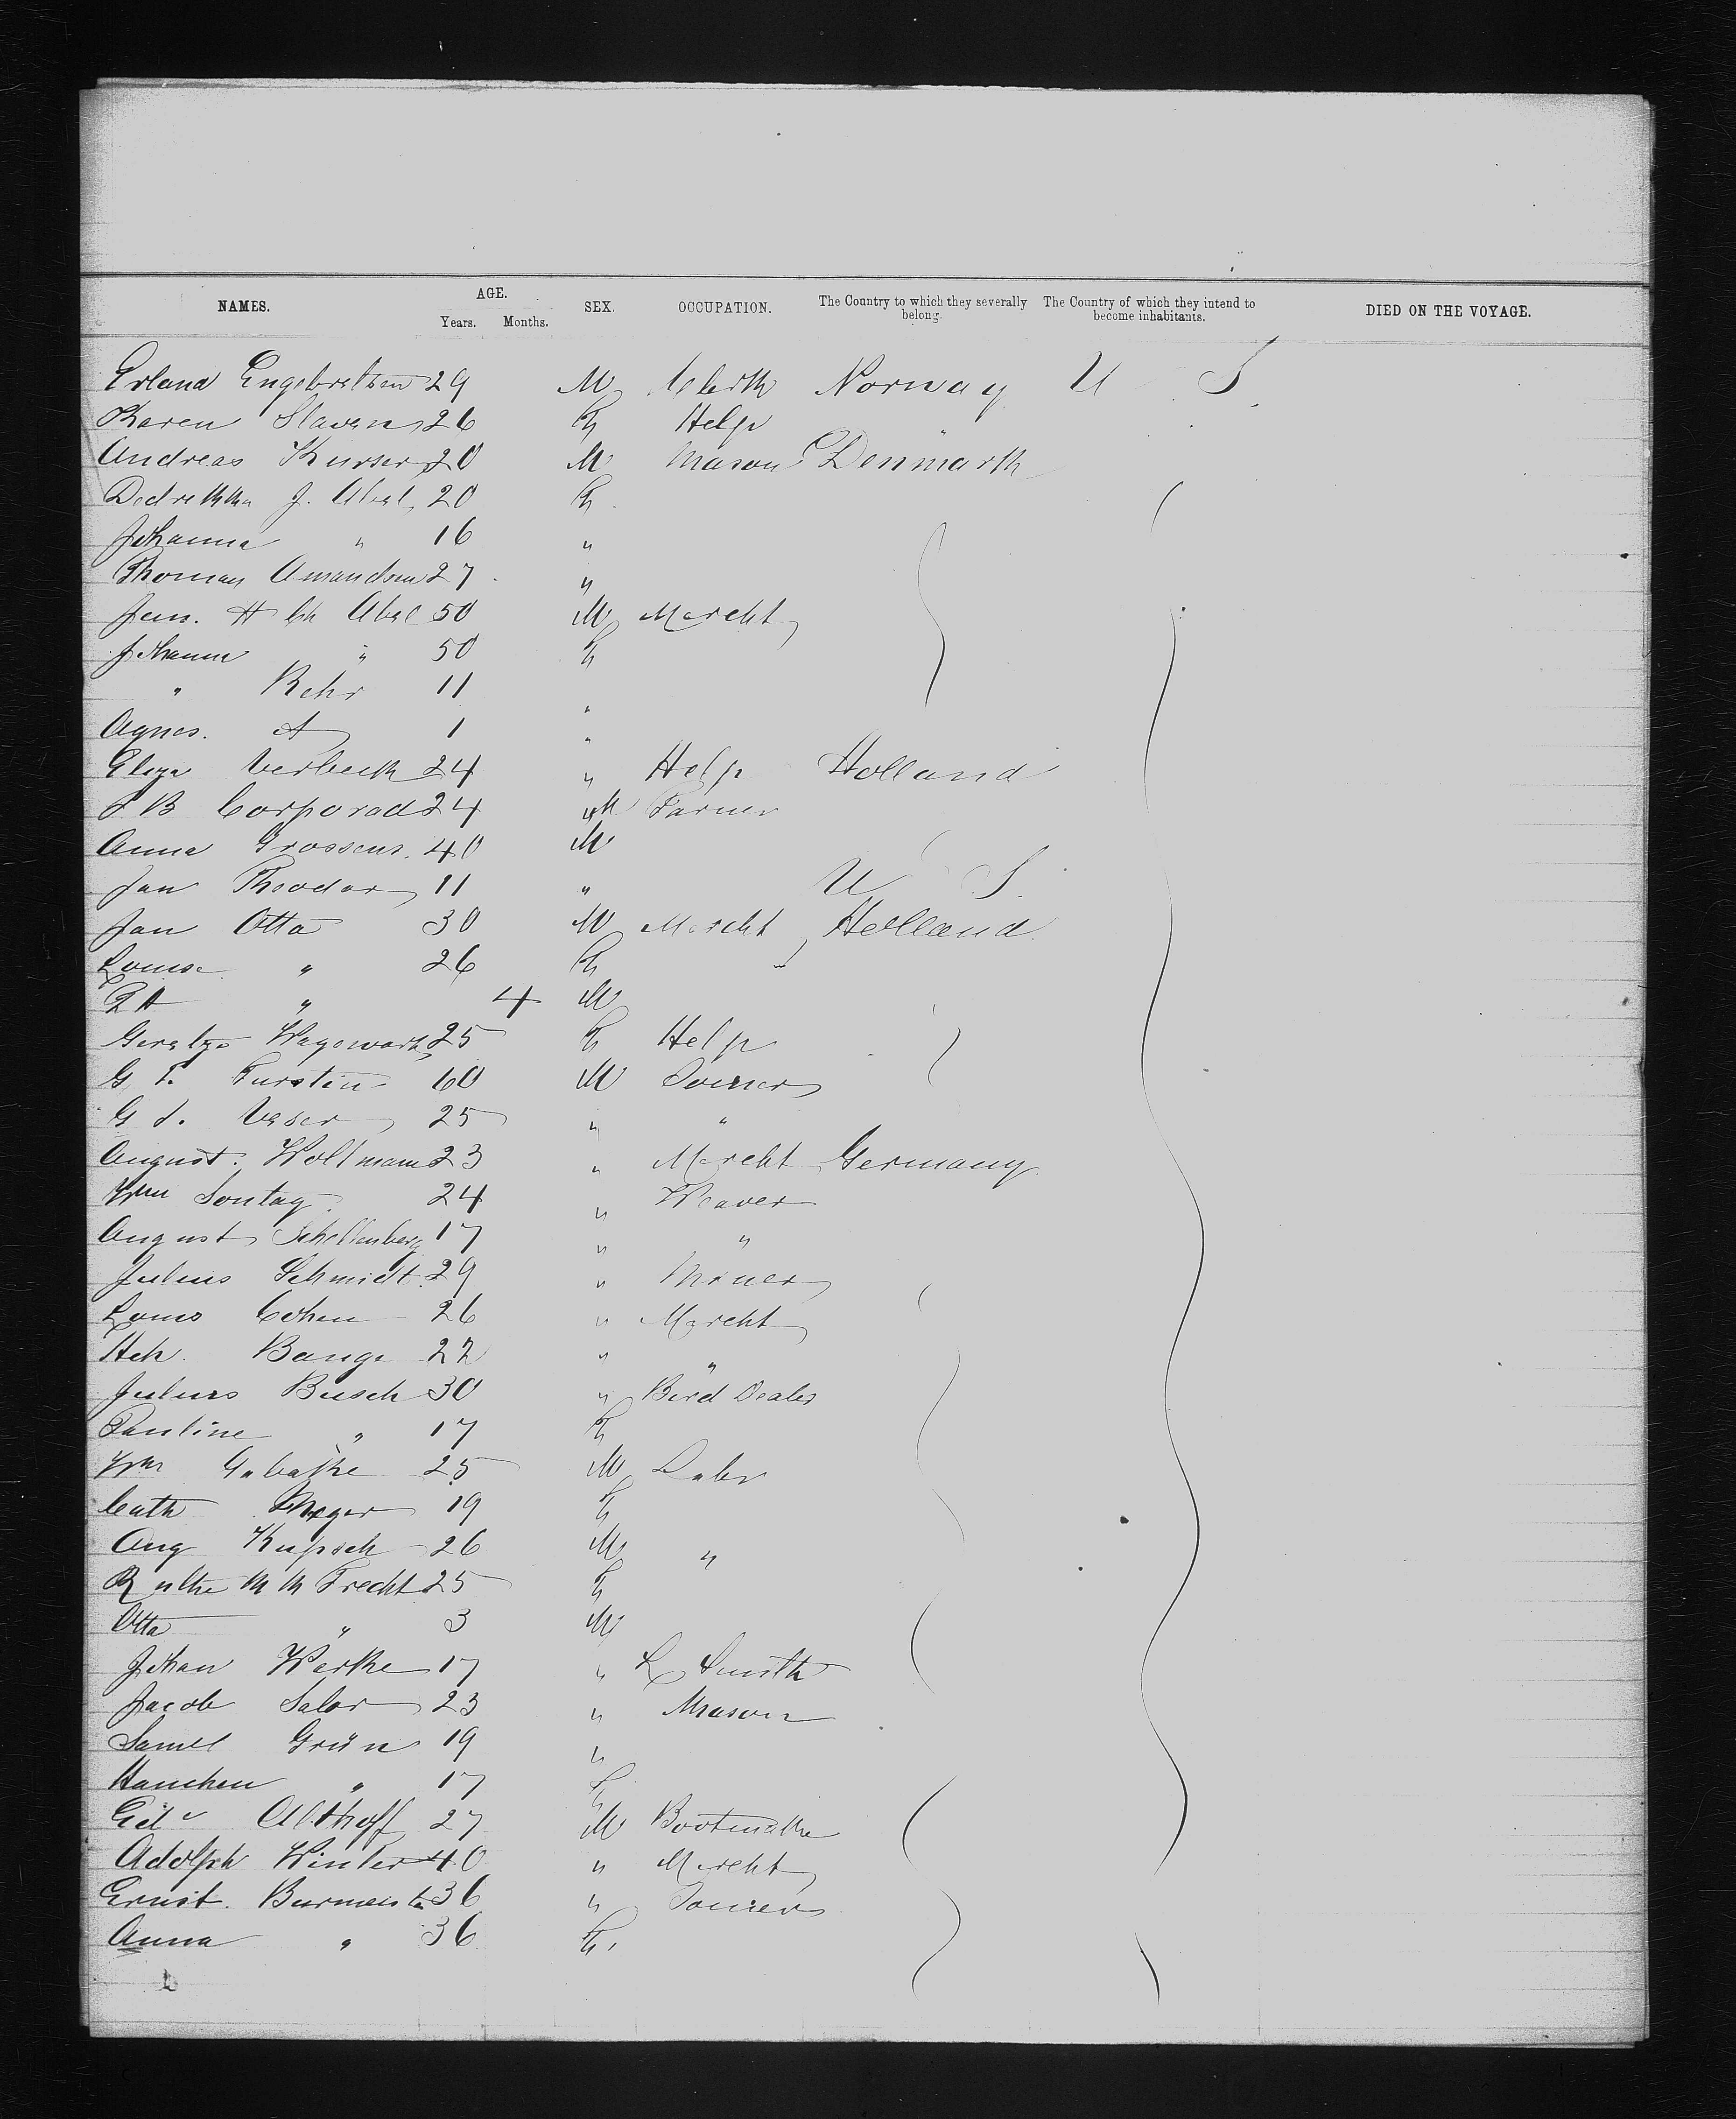 NAMES. AGE. Years. Months. SEX. OCCUPATION. The Country to which they severally belong. The Country of which they intend to become inhabitants. DIED ON THE VOYAGE.
Erland Engebretsen 29 M Clerk Norway U S
Karen Slaven 26 F Help
Andreas Kurser 20 M Mason Denmark
J. Abel 20 F
Johanna " 16 "
Thomas Amandsen 27 "
Jen. H Ch Abel 50 M Mercht
Johanne " 50 F
" Behr 11
Agnes. A 1 "
Eliza Verbeek 24 " Help Holland
J B Corporad 24 M Farmer
Anna Grossens. 40 M
Jan Theodor 11 " U S.
Jan Otta 30 M Mercht Holland
Louise " 26 F "
" 4 M
Wagewart 25 F Help
G F. Fursten 60 M Joiner
G J. Veser 25 " "
August. Wollmann 23 " Mercht Germany
Wm Sontag 24 " Weaver
August Schellenberg 17 " "
Julius Schmidt. 29 " Miner
Louis Cohen 26 " Mercht
Hch. Bange 22 " "
Julius Busch 30 " Bird Dealer
Pauline " 17 F
Wm Gabathe 25 M Labr
Cath Meyer 19 F
Aug Kupsch 26 M "
M M Frecht 25 F
Otta " 3 M
Johan Warke 17 " L Smith
Jacob Salor 23 " Mason
Samel Grün 19 "
Hanchen " 17 F
Edu Althoff 27 M Bootmake
Adolph Winter 40 " Mercht
Ernst. Burmeister 36 " Joiner
Anna " 36 F.